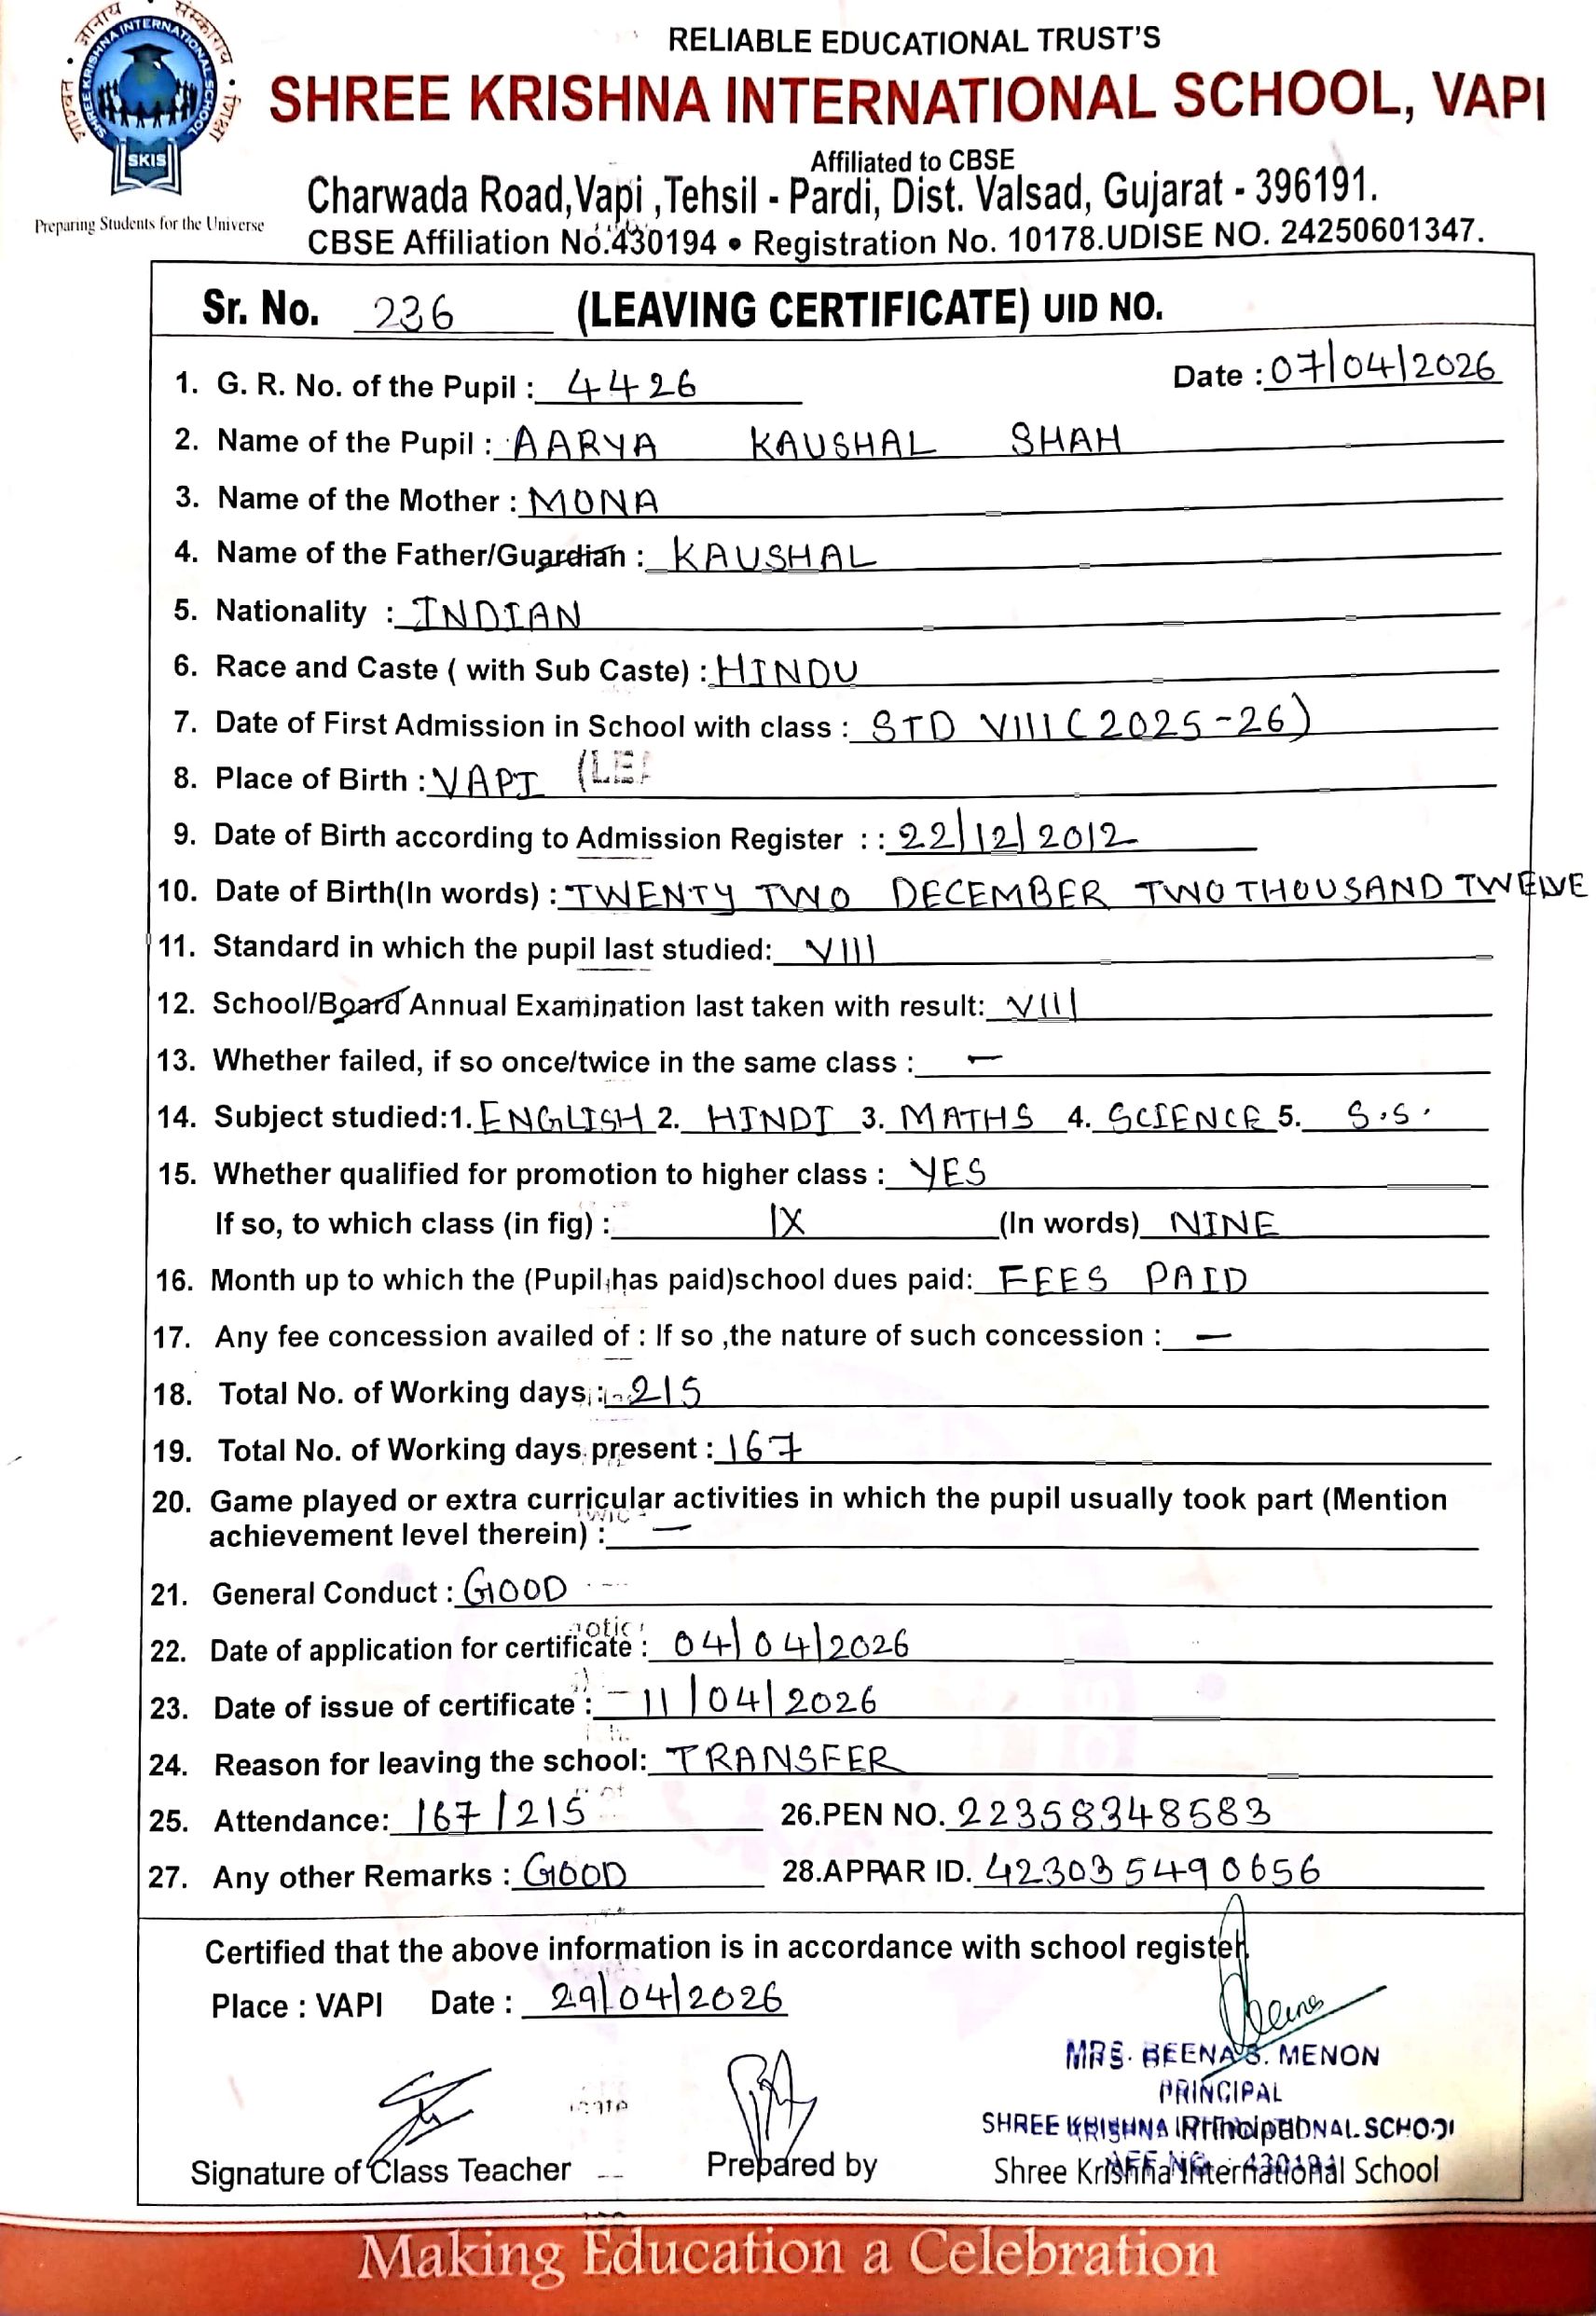 RELIABLE EDUCATIONAL TRUST'S
SHREE KRISHNA INTERNATIONAL SCHOOL, VAPI
SHREE KRISHNA INTERNATIONAL SCHOOL
SKIS
Preparing Students for the Universe
Affiliated to CBSE
Charwada Road,Vapi ,Tehsil - Pardi, Dist. Valsad, Gujarat - 396191.
CBSE Affiliation No.430194 • Registration No. 10178.UDISE NO. 24250601347.
Sr. No. 236 (LEAVING CERTIFICATE) UID NO.
Date : 07/04/2026
1. G. R. No. of the Pupil : 4426
2. Name of the Pupil : AARYA KAUSHAL SHAH
3. Name of the Mother : MONA
4. Name of the Father/Guardian : KAUSHAL
5. Nationality : INDIAN
6. Race and Caste ( with Sub Caste) : HINDU
7. Date of First Admission in School with class : STD VIII (2025-26)
8. Place of Birth : VAPI
9. Date of Birth according to Admission Register : : 22/12/2012
10. Date of Birth(In words) : TWENTY TWO DECEMBER TWO THOUSAND TWELVE
11. Standard in which the pupil last studied: VIII
12. School/Board Annual Examination last taken with result: VIII
13. Whether failed, if so once/twice in the same class : —
14. Subject studied:1. ENGLISH 2. HINDI 3. MATHS 4. SCIENCE 5. S.S.
15. Whether qualified for promotion to higher class : YES
If so, to which class (in fig) : IX (In words) NINE
16. Month up to which the (Pupil has paid)school dues paid: FEES PAID
17. Any fee concession availed of : If so ,the nature of such concession : —
18. Total No. of Working days : 215
19. Total No. of Working days present : 167
20. Game played or extra curricular activities in which the pupil usually took part (Mention
achievement level therein) : —
21. General Conduct : GOOD
22. Date of application for certificate : 04/04/2026
23. Date of issue of certificate : 11/04/2026
24. Reason for leaving the school: TRANSFER
25. Attendance: 167/215 26.PEN NO. 22358348583
27. Any other Remarks : GOOD 28.APPAR ID. 423035490656
Certified that the above information is in accordance with school register.
Place : VAPI Date : 29/04/2026
MRS. BEENA S. MENON
PRINCIPAL
SHREE KRISHNA INTERNATIONAL SCHOOL
Principal
AFF NO. 430194
Shree Krishna International School
Signature of Class Teacher Prepared by
Making Education a Celebration